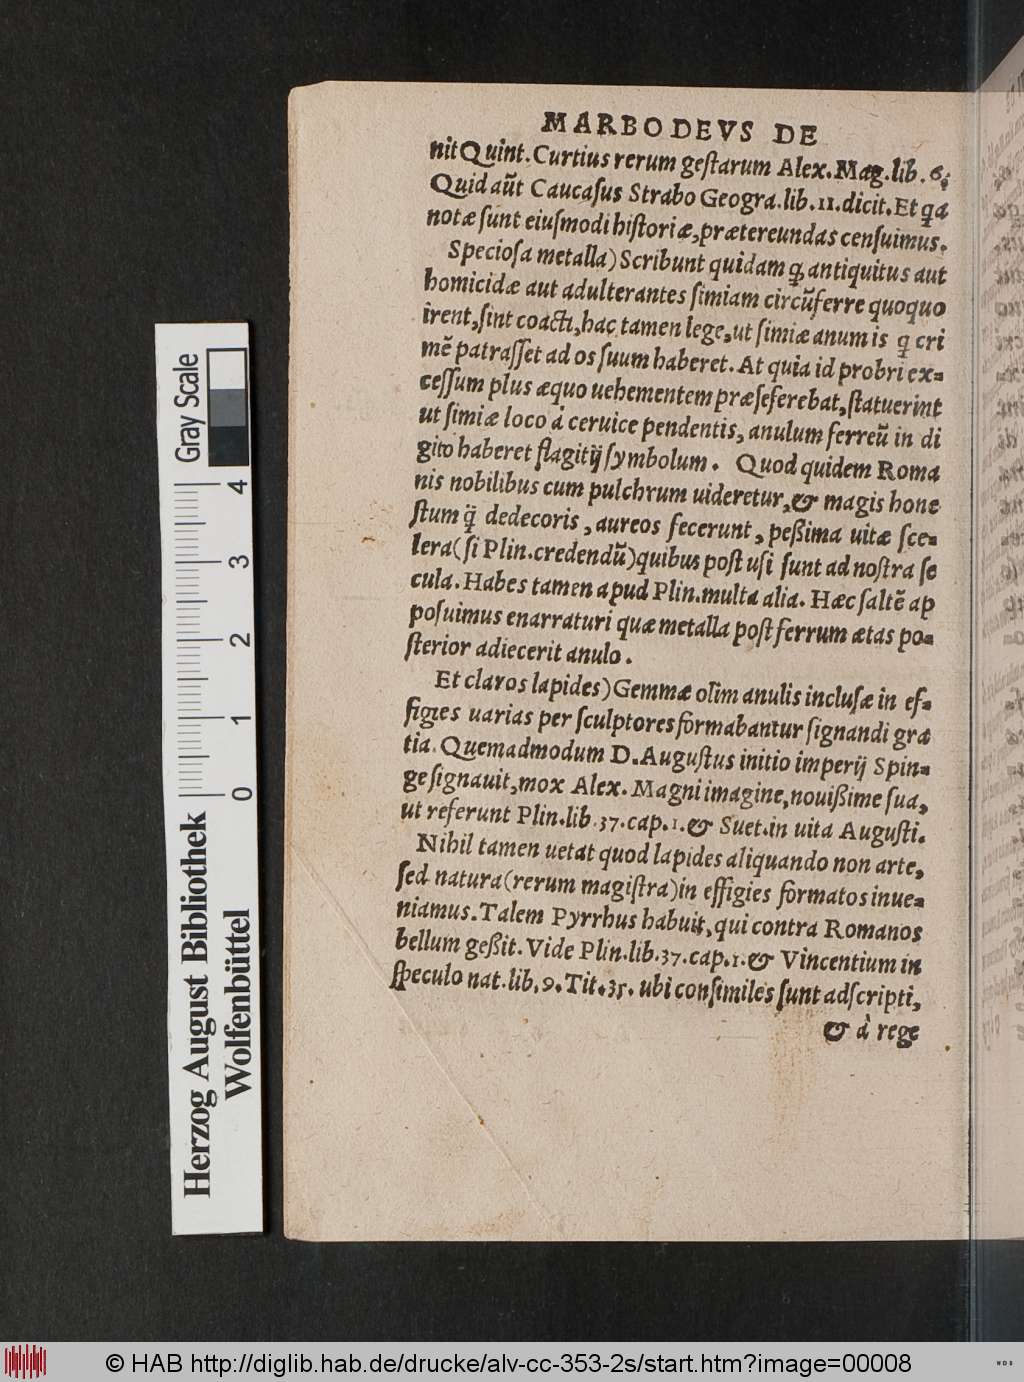 MARBODEVS DE
nit Quint. Curtius rerum geſtarum Alex. Mag. lib. 6.
Quid aūt Caucaſus Strabo Geogra. lib. 11. dicit. Et q̃a
notæ ſunt eiuſmodi hiſtoriæ, prætereundas cenſuimus.
Specioſa metalla) Scribunt quidam q̃ antiquitus aut
homicidæ aut adulterantes ſimiam circūferre quoquo
irent, ſint coacti, hac tamen lege, ut ſimiæ anum is q̃ cri
mē patraſſet ad os ſuum haberet. At quia id probri ex=
ceſſum plus æquo uehementem præſeferebat, ſtatuerint
ut ſimiæ loco à ceruice pendentis, anulum ferreū in di
gito haberet flagitij ſymbolum. Quod quidem Roma
nis nobilibus cum pulchrum uideretur, & magis hone
ſtum q̃ dedecoris, aureos fecerunt, peßima uitæ ſce=
lera (ſi Plin. credendū) quibus poſt uſi ſunt ad noſtra ſe
cula. Habes tamen apud Plin. multa alia. Hæc ſaltē ap
poſuimus enarraturi quæ metalla poſt ferrum ætas po=
ſterior adiecerit anulo.
Et claros lapides) Gemmæ olim anulis incluſæ in ef=
figies uarias per ſculptores formabantur ſignandi gra
tia. Quemadmodum D. Auguſtus initio imperij Spin=
ge ſignauit, mox Alex. Magni imagine, nouißime ſua,
ut referunt Plin. lib. 37. cap. 1. & Suet. in uita Auguſti.
Nihil tamen uetat quod lapides aliquando non arte,
ſed natura (rerum magiſtra) in effigies formatos inue=
niamus. Talem Pyrrhus habuit, qui contra Romanos
bellum geßit. Vide Plin. lib. 37. cap. 1. & Vincentium in
ſpeculo nat. lib. 9. Tit. 35. ubi conſimiles ſunt adſcripti,
& à rege
Gray Scale
4
3
2
1
0
Herzog August Bibliothek
Wolfenbüttel
© HAB http://diglib.hab.de/drucke/alv-cc-353-2s/start.htm?image=00008